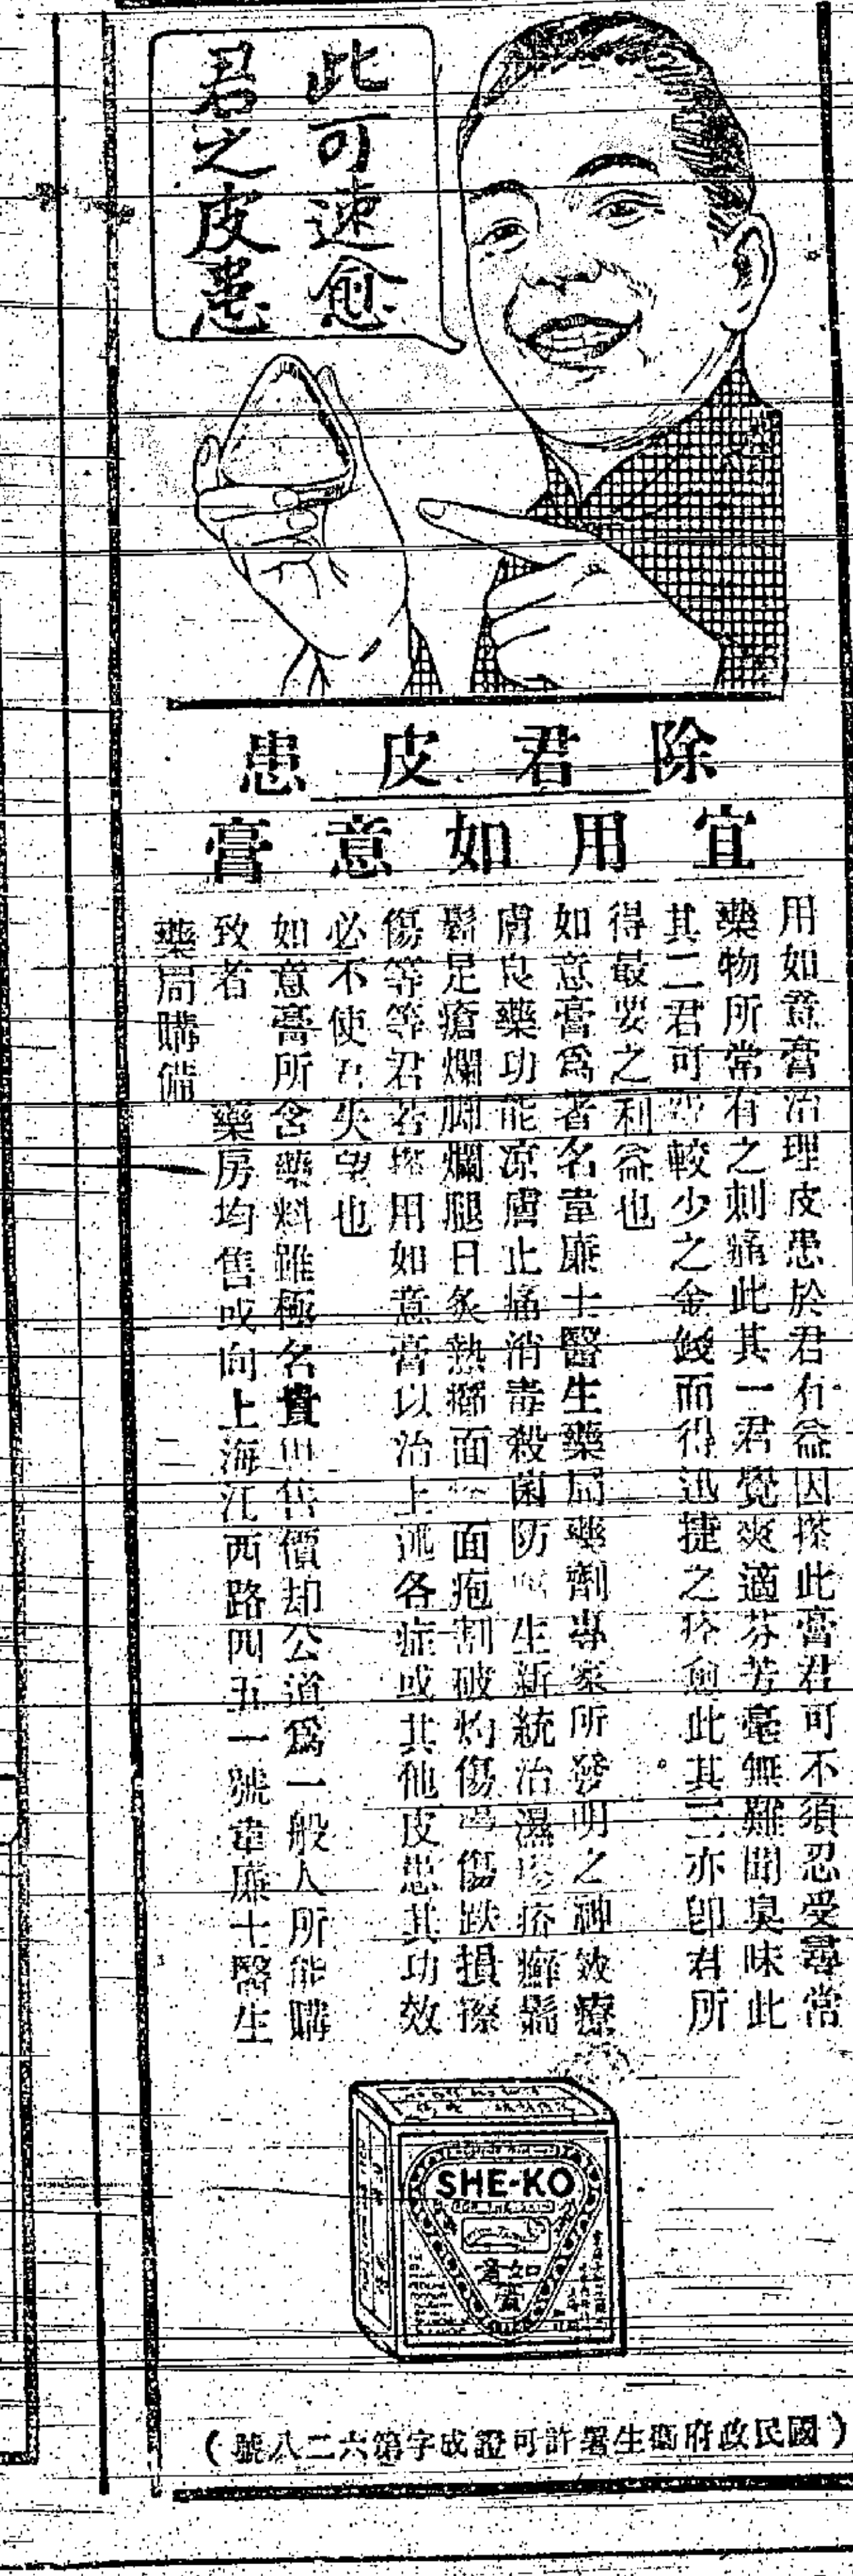 此可速愈
君之皮患
除君皮患
宜用如意膏
用如意膏治理皮患於君有益因搽此膏君可不須忍受尋常
藥物所常有之刺痛此其一君覺爽適芬芳毫無難聞臭味此
其二君可 較少之金錢而得迅捷之痊愈此其三亦卽君所
得最要之利益也
如意膏爲著名韋廉士醫生藥局藥劑專家所發明之神效療
膚良藥功能凉膚止痛消毒殺菌防 生新統治濕 疥癬鬍
鬚足瘡爛脚爛腿日炙熱癤面 面疱割破灼傷 傷跌損擦
傷等等君若搽用如意膏以治上述各症或其他皮患其功效
必不使君失望也
如意膏所含藥料雖極名貴 售價却公道爲一般人所能購
致者 藥房均售或向上海江西路四五一號韋廉士醫生
藥局購備
SHE-KO
如意
膏
(國民政府衞生署許可證成字第六二八號)